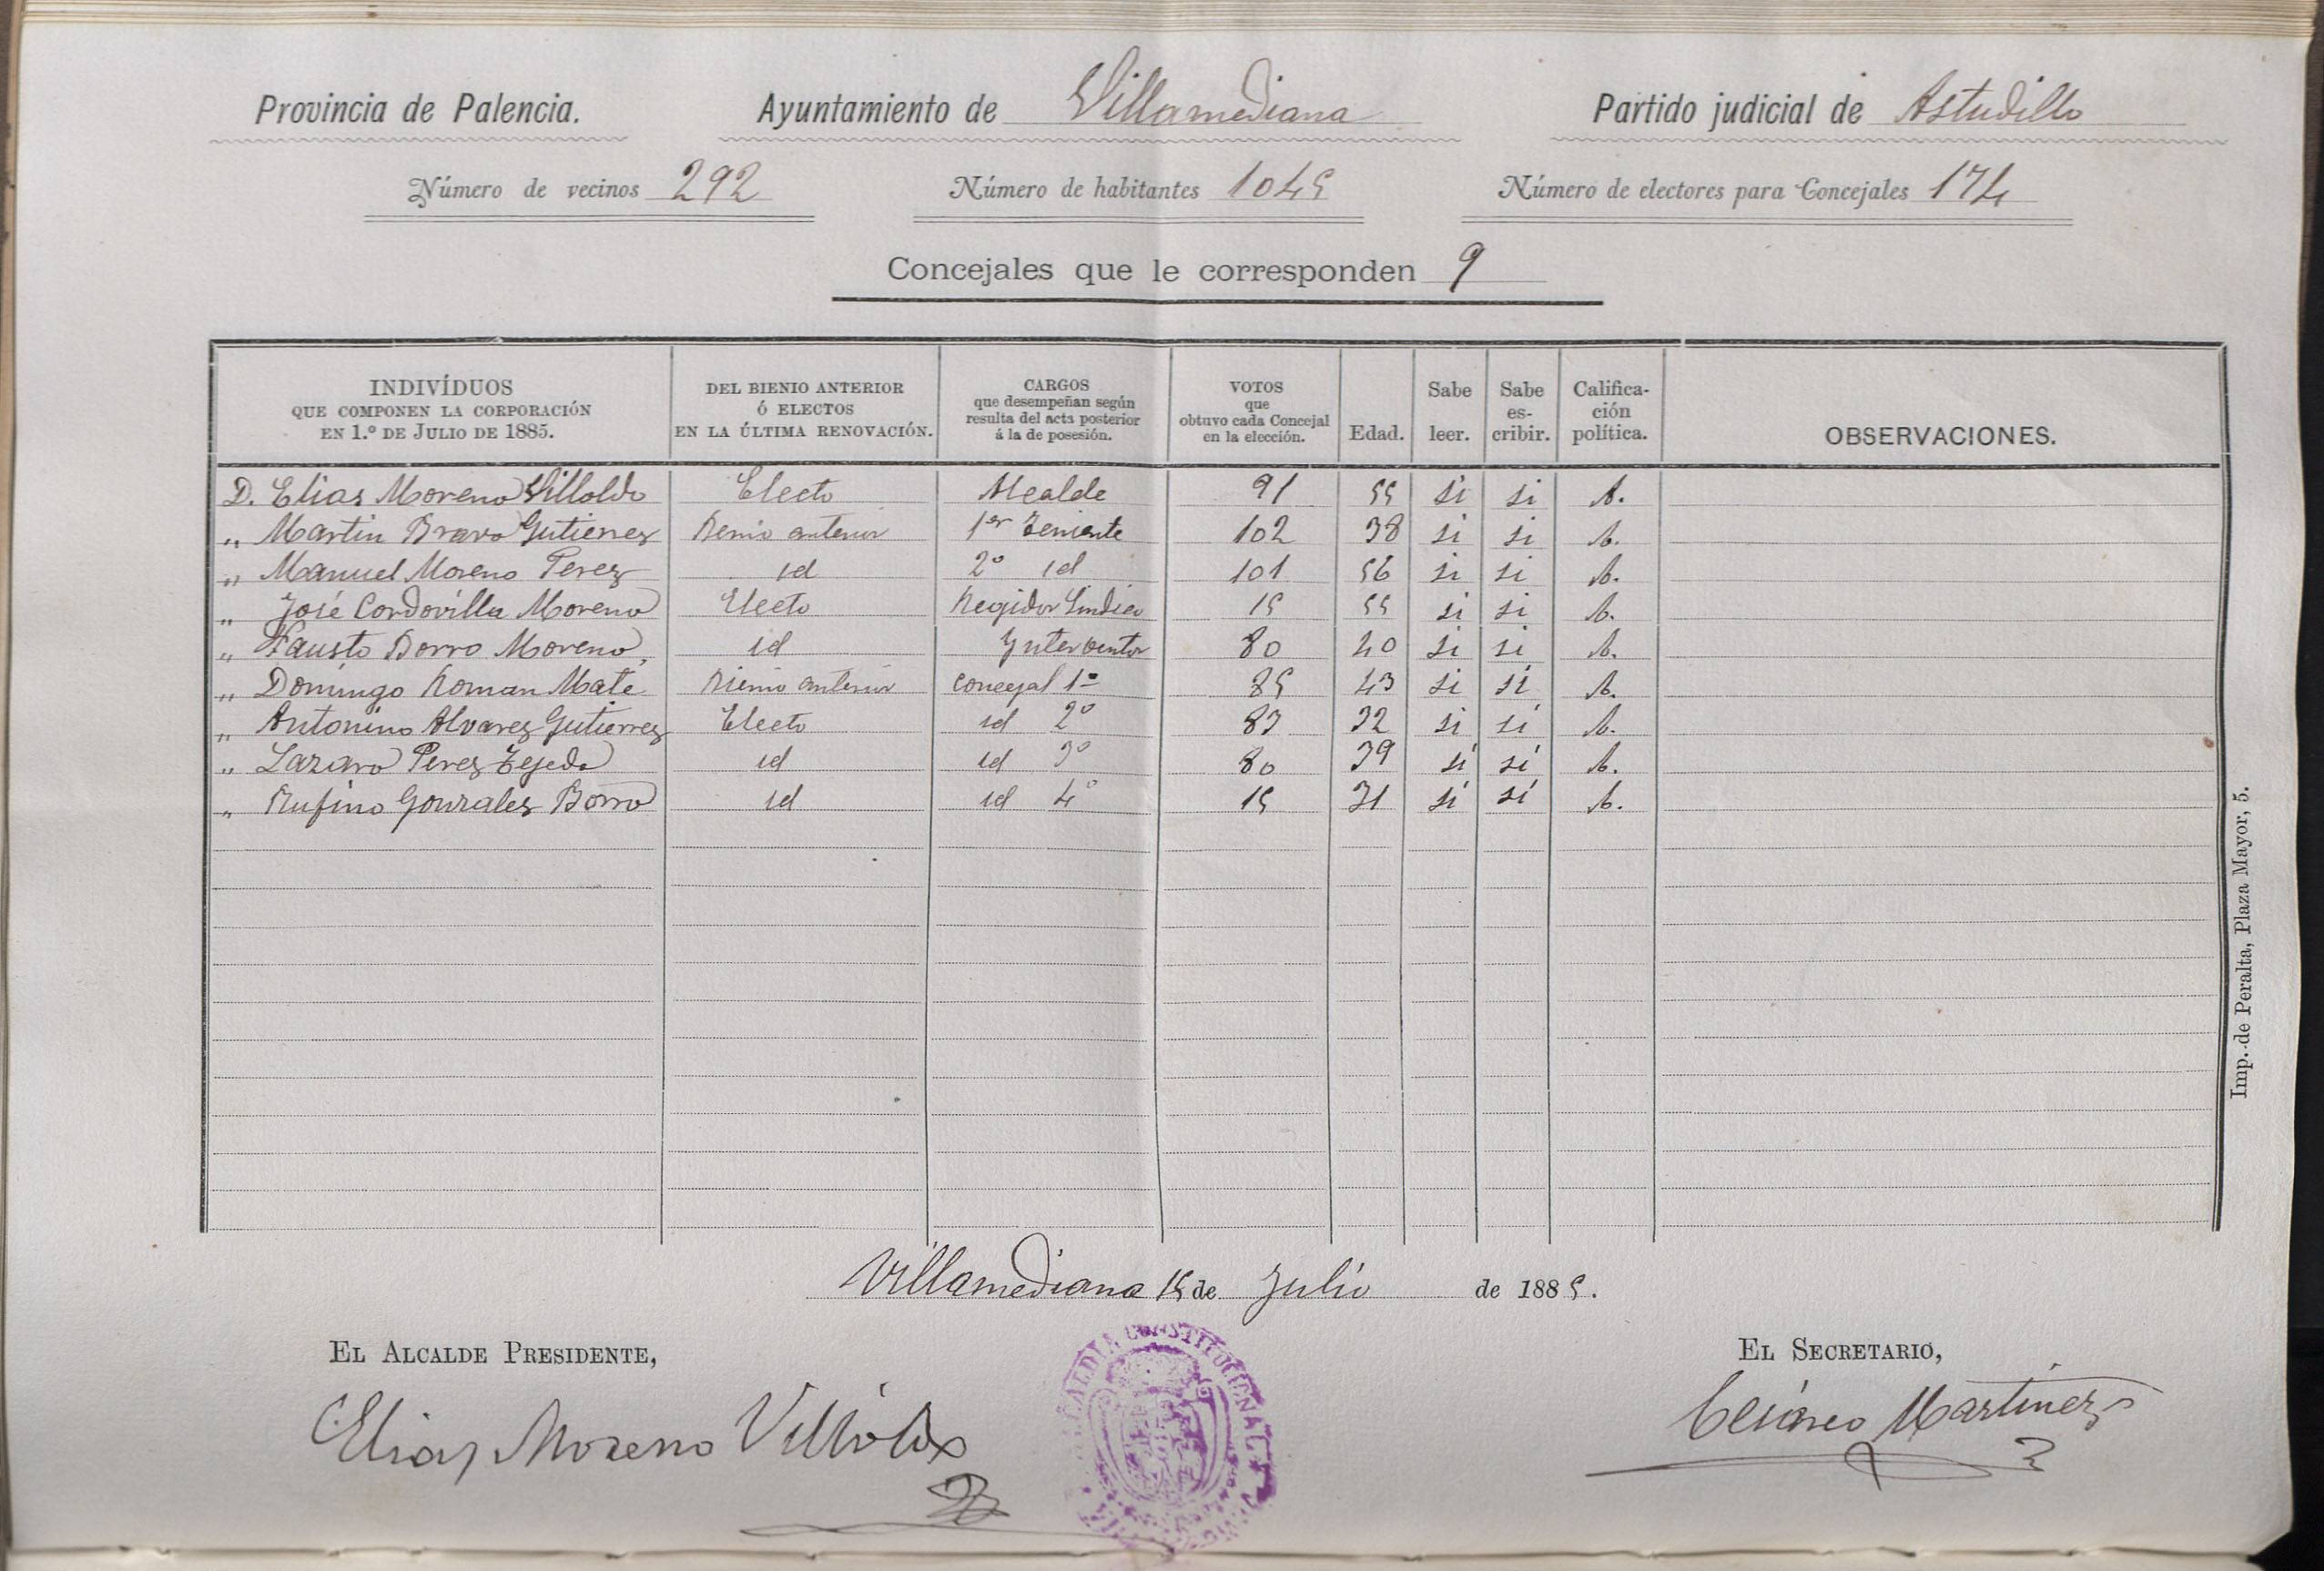 Provincia de Palencia. Ayuntamiento de Villamediana Partido judicial de Astudillo
Número de vecinos 292 Número de habitantes 1045 Número de electores para Concejales 174
Concejales que le corresponden 9
INDIVÍDUOS QUE COMPONEN LA CORPORACIÓN EN 1.º DE JULIO DE 1885. DEL BIENIO ANTERIOR Ó ELECTOS EN LA ÚLTIMA RENOVACIÓN. CARGOS que desempeñan según resulta del acta posterior á la de posesión. VOTOS que obtuvo cada Concejal en la elección. Edad. Sabe leer. Sabe es-cribir. Califica-ción política. OBSERVACIONES.
D. Elias Moreno Villoldo Electo Alcalde 91 55 si si A.
" Martin Bravo Gutierrez Bienio anterior 1er Teniente 102 38 si si A.
" Manuel Moreno Perez id 2º id 101 56 si si A.
" José Cordovilla Moreno Electo Regidor Sindico 15 55 si si A.
" Fausto Borro Moreno id Ynterventor 80 40 si si A.
" Domingo Roman Mate Bienio anterior concejal 1º 85 43 si si A.
" Antonino Alvarez Gutierrez Electo id 2º 83 32 si si A.
" Lazaro Perez Tejedo id id 3º 80 39 si si A.
" Rufino Gonzales Borro id id 4º 15 31 si si A.
Villamediana 15 de Julio de 1885.
EL ALCALDE PRESIDENTE, EL SECRETARIO,
Elias Moreno Villoldo Martinez
ALCALDIA CONSTITUCIONAL
Imp. de Peralta, Plaza Mayor, 5.